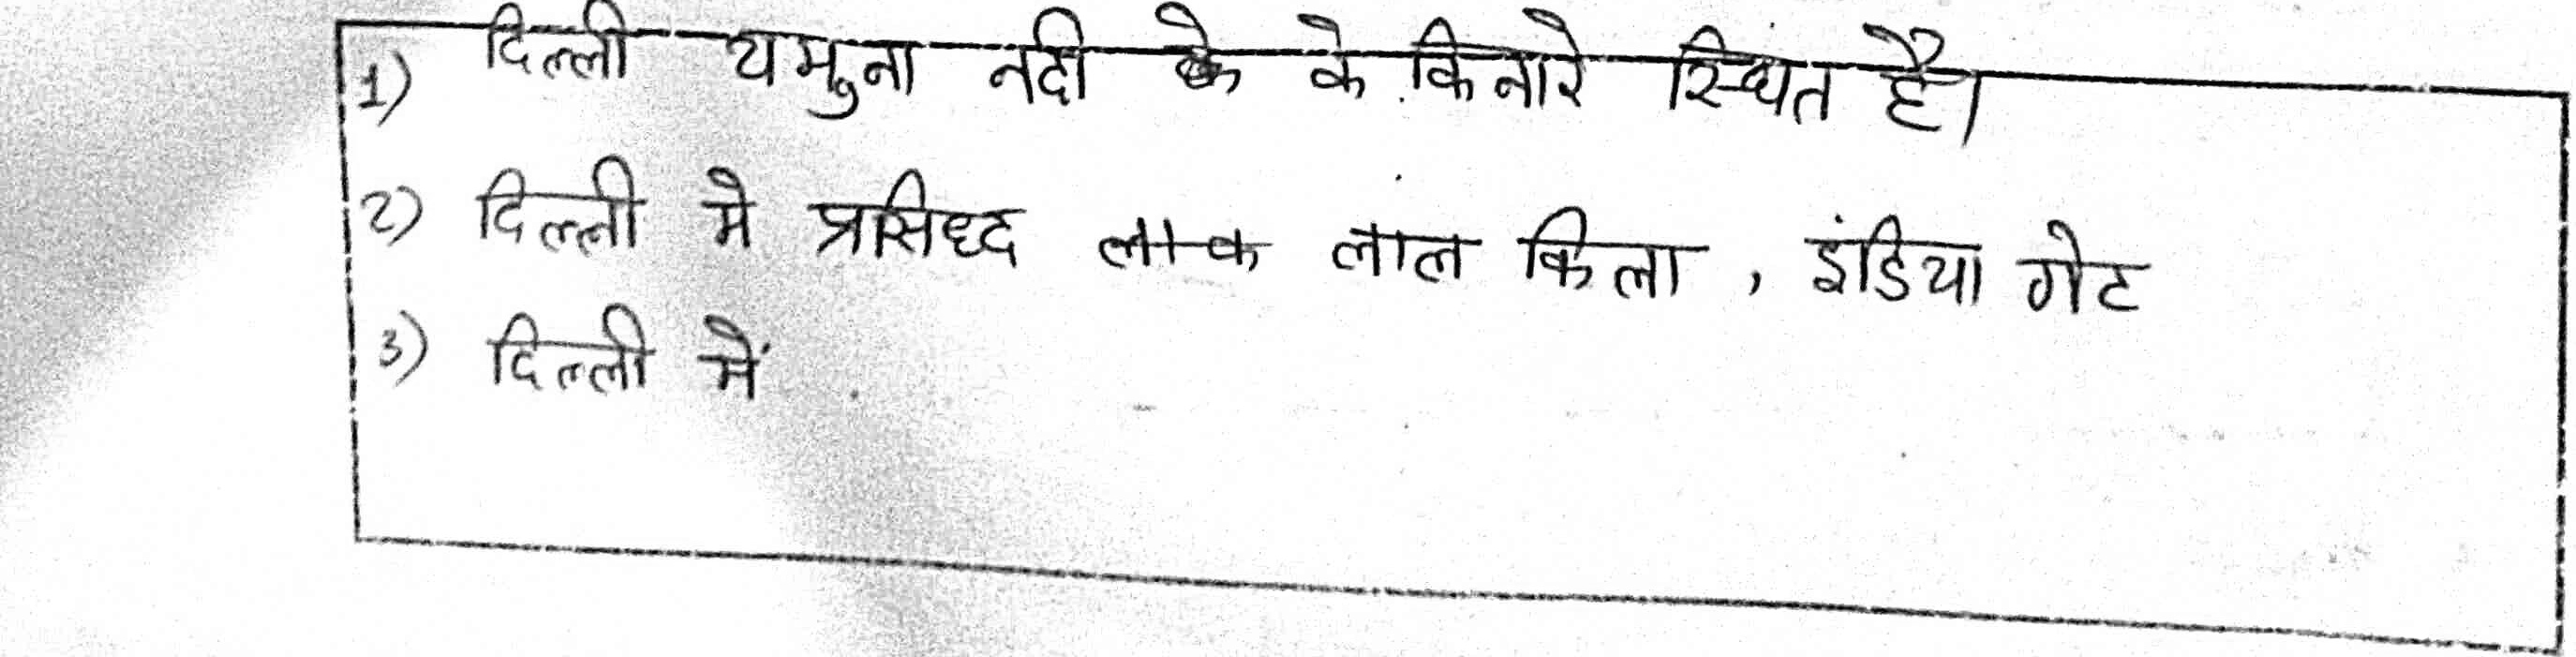 1) दिल्ली यमुना नदी के के किनारे स्थित है।
2) दिल्ली मे प्रसिध्द लाक लाल किला , इंडिया गेट
3) दिल्ली में